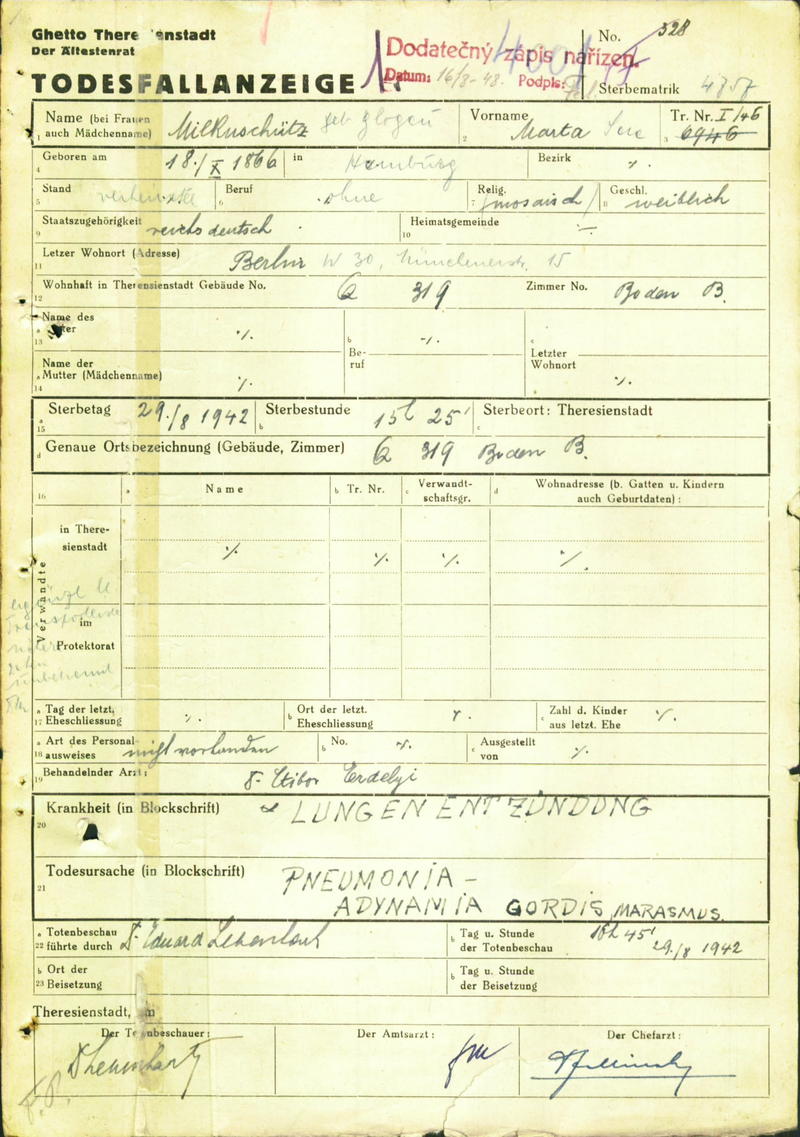 Ghetto Theresienstadt
Der Ältestenrat
Dodatečný zápis nařízen.
Datum: 16/8-48. Podpis:
No. 328
TODESFALLANZEIGE
Sterbematrik 4757
Name (bei Frauen auch Mädchenname) Milkuschütz geb Glogau
Vorname Marta Sara
Tr. Nr. I/46
6946
Geboren am 18./X 1866 in Hamburg Bezirk ./.
Stand verheiratet Beruf ohne Relig. mosaisch Geschl. weiblich
Staatszugehörigkeit reichsdeutsch Heimatsgemeinde ./.
Letzer Wohnort (Adresse) Berlin W 30, 15
Wohnhaft in Theresienstadt Gebäude No. Q 319 Zimmer No. Boden B.
Name des Vater ./. Beruf ./. Letzter Wohnort ./.
Name der Mutter (Mädchenname) ./.
Sterbetag 29./8 1942 Sterbestunde 15h 25' Sterbeort: Theresienstadt
Genaue Ortsbezeichnung (Gebäude, Zimmer) Q 319 Boden B.
Name Tr. Nr. Verwandtschaftsgr. Wohnadresse (b. Gatten u. Kindern auch Geburtdaten):
Verwandte
in Theresienstadt ./. ./. ./. ./.
im Protektorat
Tag der letzt. Eheschliessung ./. Ort der letzt. Eheschliessung ./. Zahl d. Kinder aus letzt. Ehe ./.
Art des Personalausweises nicht vorhanden No. ./. Ausgestellt von ./.
Behandelnder Arzt: Erdelyi
Krankheit (in Blockschrift) LUNGENENTZÜNDUNG
Todesursache (in Blockschrift) PNEUMONIA -
ADYNAMIA GORDIS, MARASMUS.
Totenbeschau führte durch Dr. Eduard Tag u. Stunde der Totenbeschau 18h 45' 29./8 1942
Ort der Beisetzung Tag u. Stunde der Beisetzung
Theresienstadt, am
Der Totenbeschauer: Der Amtsarzt: Der Chefarzt: